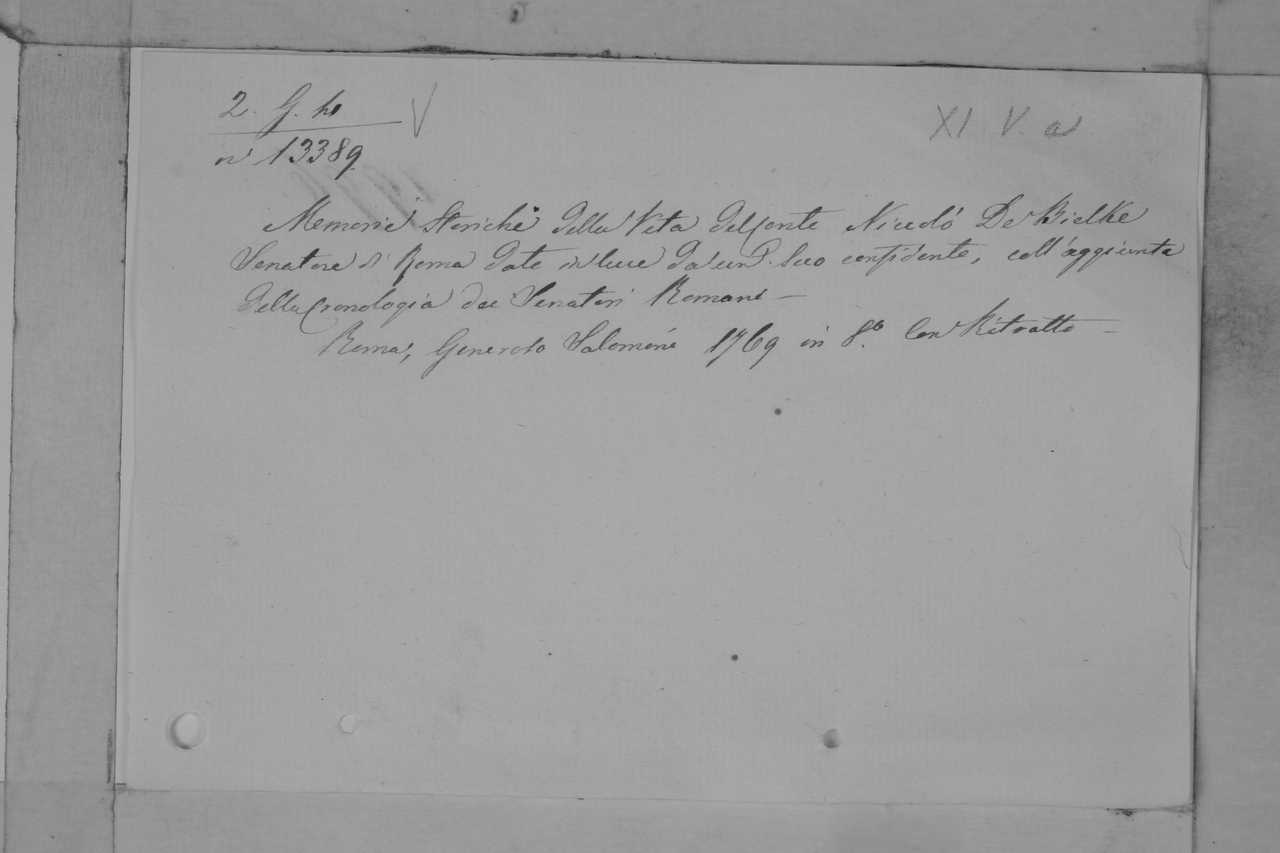 2. G. h. V
XI V. a
n.º 13389
Memorie Storiche della Vita del Conte Niccoló De Bielke
Senatore di Roma date in luce da un Suo confidente, coll'aggiunta
della Cronologia dei Senatori Romani —
Roma, Generoso Salomoni 1769 in 8.º Con Ritratto —